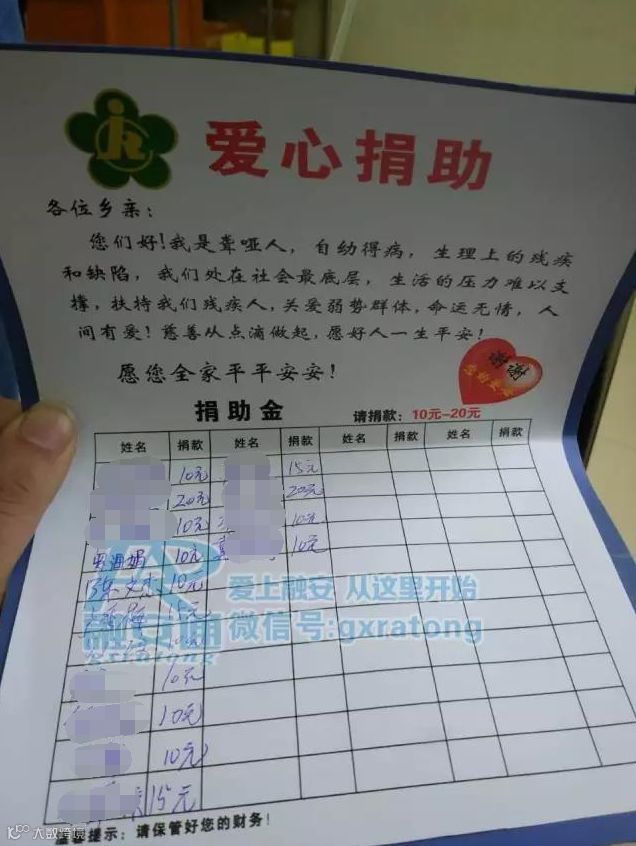 爱心捐助
各位乡亲：
您们好!我是聋哑人，自幼得病，生理上的残疾
和缺陷，我们处在社会最底层，生活的压力难以支
撑，扶持我们残疾人，关爱弱势群体，命运无情，人
间有爱！慈善从点滴做起，愿好人一生平安！
愿您全家平平安安！
谢谢
捐助金 请捐款：10元-20元
姓名 捐款 姓名 捐款 姓名 捐款 姓名 捐款
10元 15元
20元 20元
10元 10元
10元 10元
10元
15元
10元
10元
10元
15元
爱上融安 从这里开始
融安通 微信号:gxratong
gxratong
提示：请保管好您的财务！
大数跨境